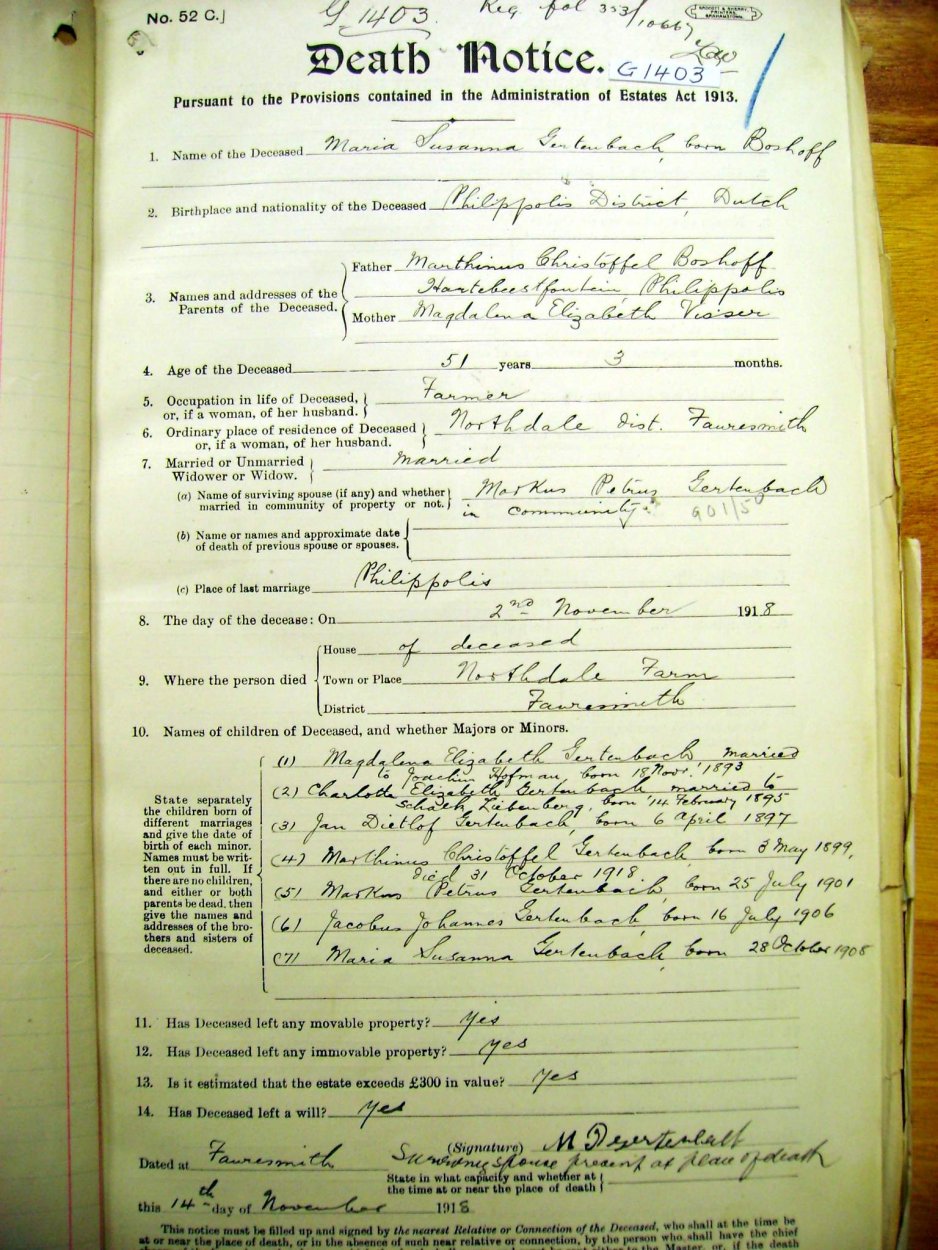 No. 52 C.
G 1403.
Reg fol 353/10667
GROCOTT & SHERRY, PRINTERS, GRAHAMSTOWN.
Death Notice.
G1403
Pursuant to the Provisions contained in the Administration of Estates Act 1913.
1. Name of the Deceased Maria Susanna Gertenbach, born Boshoff
2. Birthplace and nationality of the Deceased Philippolis District, Dutch
3. Names and addresses of the Parents of the Deceased.
Father Marthinus Christoffel Boshoff
Hartebeestfontein Philippolis
Mother Magdalena Elizabeth Visser
4. Age of the Deceased 51 years 3 months.
5. Occupation in life of Deceased, or, if a woman, of her husband. Farmer
6. Ordinary place of residence of Deceased or, if a woman, of her husband. Northdale dist. Fauresmith
7. Married or Unmarried Widower or Widow. Married
(a) Name of surviving spouse (if any) and whether married in community of property or not. Markus Petrus Gertenbach
in community
(b) Name or names and approximate date of death of previous spouse or spouses.
(c) Place of last marriage Philippolis
8. The day of the decease: On 2nd November 1918
9. Where the person died
House of deceased
Town or Place Northdale Farm
District Fauresmith
10. Names of children of Deceased, and whether Majors or Minors.
State separately
the children born of
different marriages
and give the date of
birth of each minor.
Names must be writ-
ten out in full. If
there are no children,
and either or both
parents be dead, then
give the names and
addresses of the bro-
thers and sisters of
deceased.
(1) Magdalena Elizabeth Gertenbach married
to Joachim Hofman, born 18 Novr. 1893
(2) Charlotta Elizabeth Gertenbach married to
Schalk Liebenberg, born 14 February 1895
(3) Jan Dietlof Gertenbach, born 6 April 1897
(4) Marthinus Christoffel Gertenbach, born 3 May 1899,
died 31 October 1918
(5) Markus Petrus Gertenbach, born 25 July 1901
(6) Jacobus Johannes Gertenbach, born 16 July 1906
(7) Maria Susanna Gertenbach, born 28 October 1908
11. Has Deceased left any movable property? Yes
12. Has Deceased left any immovable property? Yes
13. Is it estimated that the estate exceeds £300 in value? Yes
14. Has Deceased left a will? Yes
(Signature)
Dated at Fauresmith
Surviving spouse present at place of death
State in what capacity and whether at
the time at or near the place of death
this 14th day of November 1918.
This notice must be filled up and signed by the nearest Relative or Connection of the Deceased, who shall at the time be
at or near the place of death, or in the absence of such near relative or connection, by the person who shall have the chief